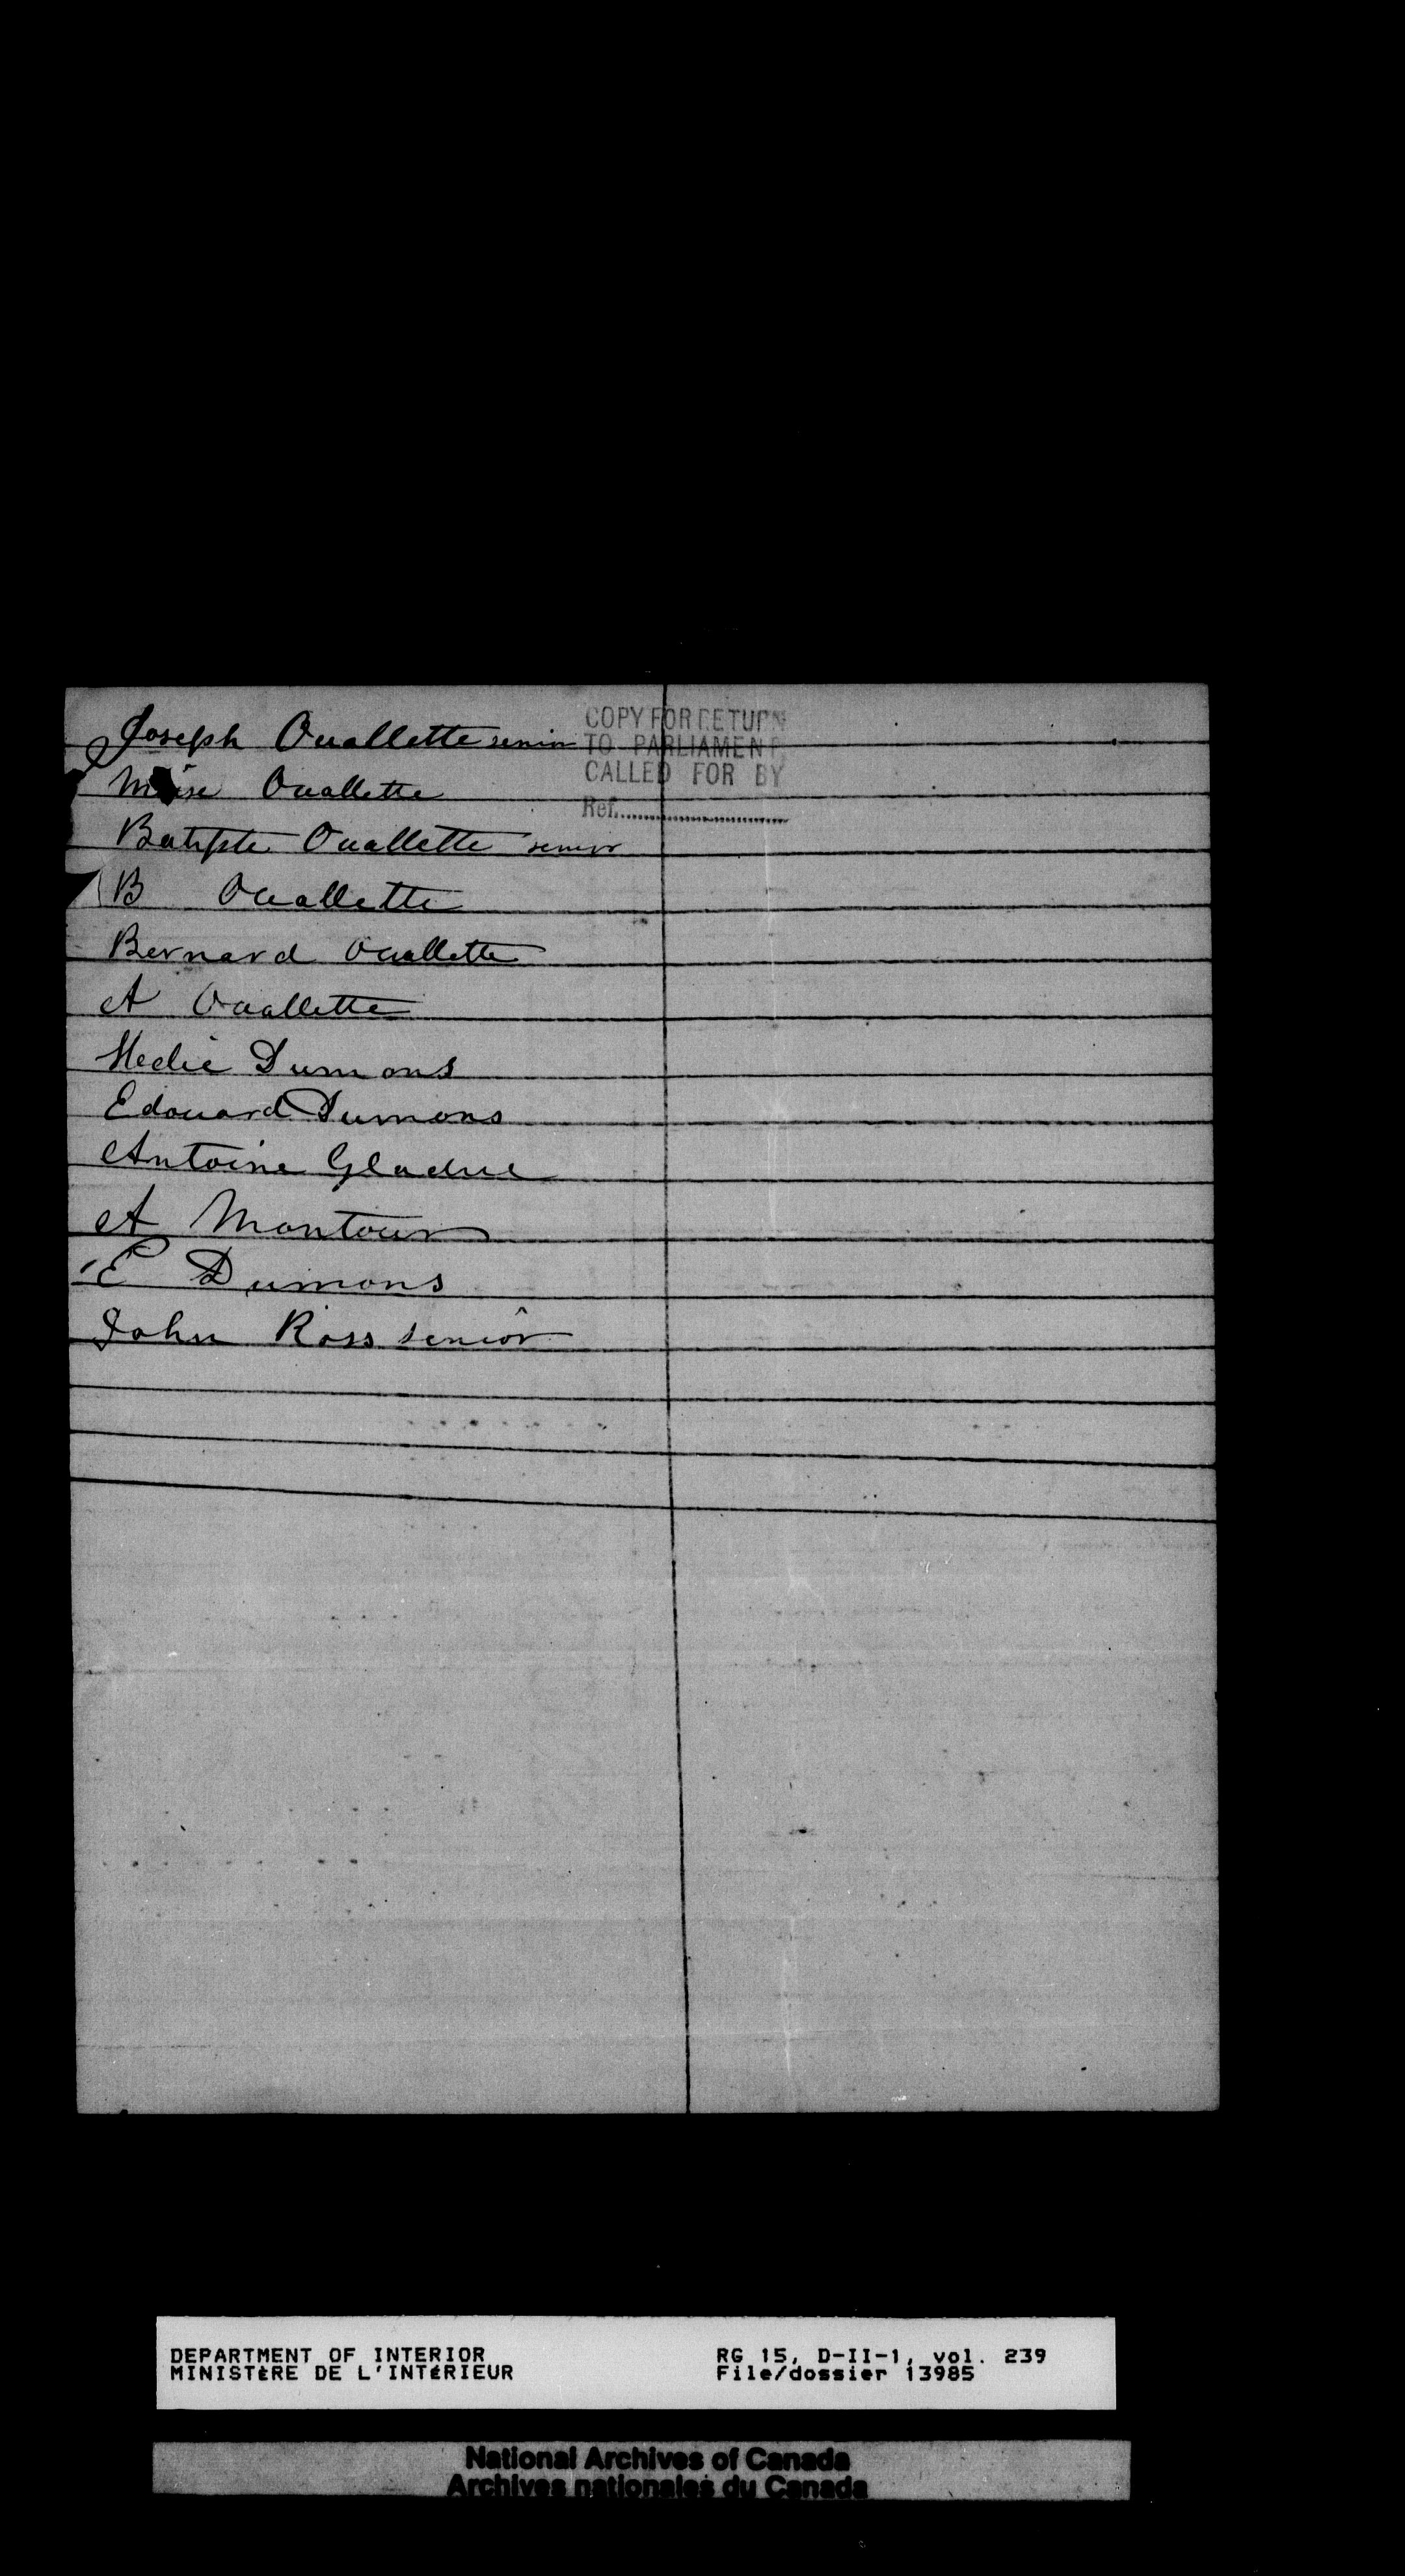 Joseph Ouallette senior
COPY FOR RETURN
TO PARLIAMENT
CALLED FOR BY
Ref.
Moise Ouallette
Batiste Ouallette senior
B Ouallette
Bernard Ouallette
A Ouallette
Dumons
Edouard Dumons
Antoine Gladue
A Montour
E Dumons
John Ross senior
DEPARTMENT OF INTERIOR
MINISTÈRE DE L'INTÉRIEUR
RG 15, D-II-1, vol. 239
File/dossier 13985
National Archives of Canada
Archives nationales du Canada